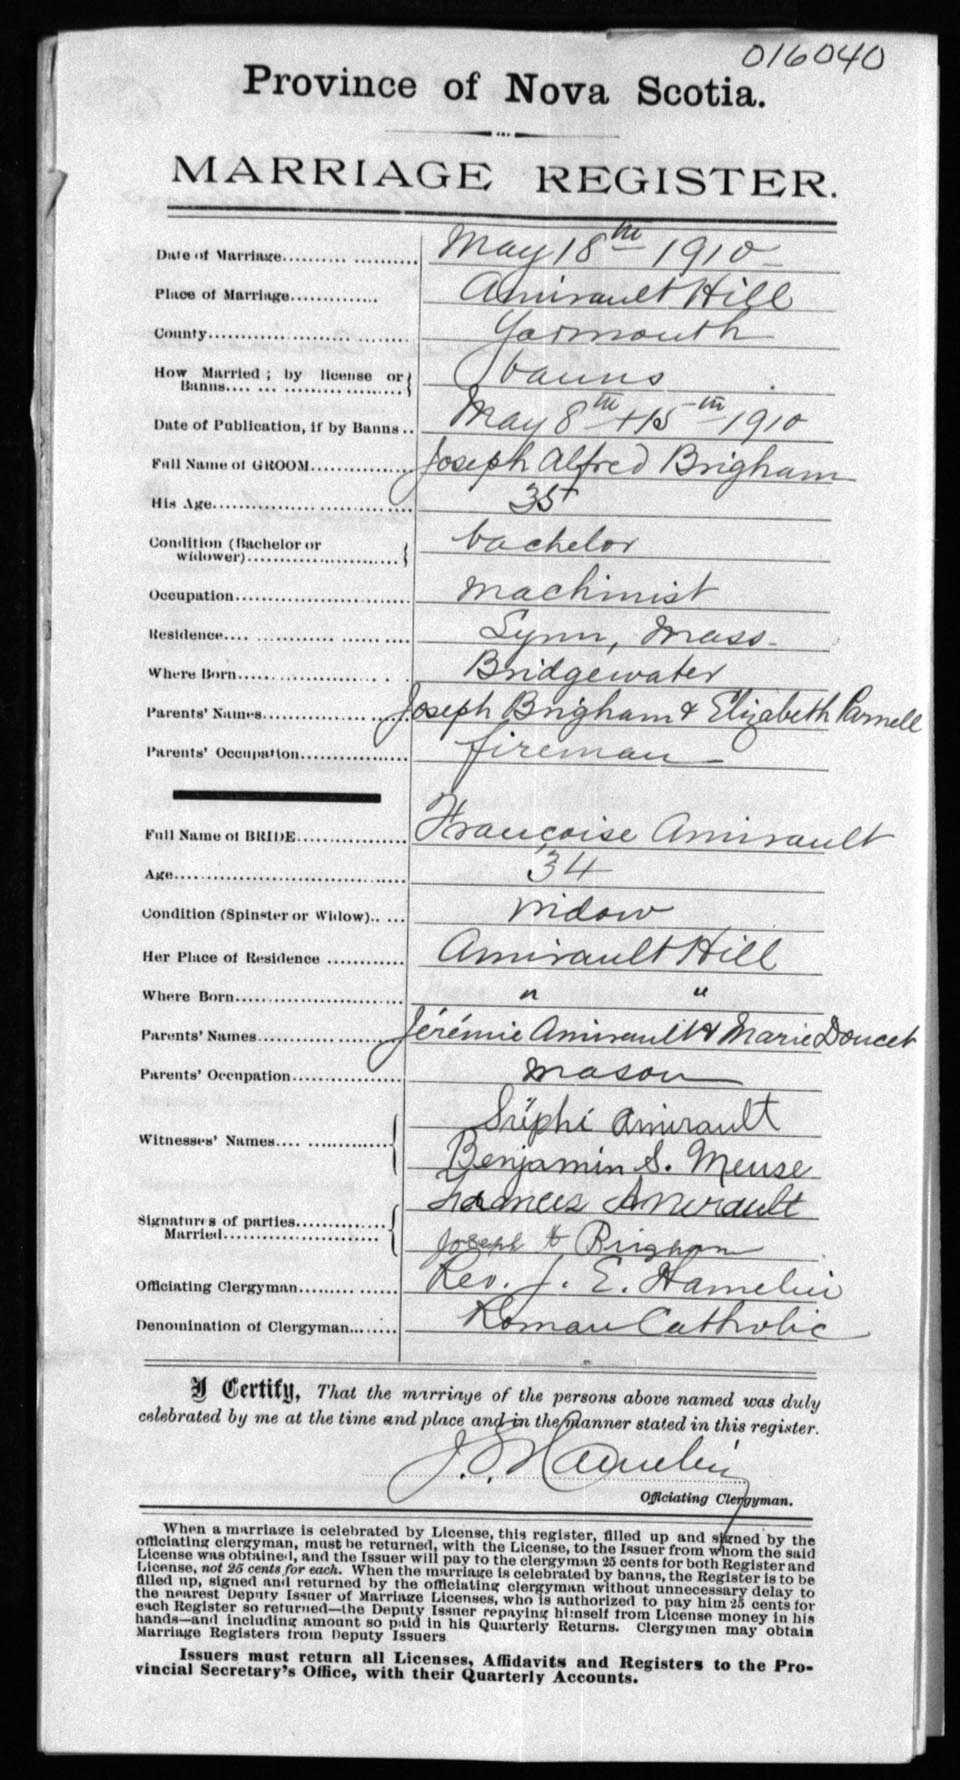 016040
Province of Nova Scotia.
MARRIAGE REGISTER.
Date of Marriage.......... .......... May 18th 1910
Place of Marriage............. Amirault Hill
County.................... ........ Yarmouth
How Married ; by license or Banns.... ... .................. banns
Date of Publication, if by Banns.. May 8th + 15th 1910
Full Name of GROOM............... Joseph Alfred Brigham
His Age.............................. 35
Condition (Bachelor or widower)........................ bachelor
Occupation.......................... Machinist
Residence.... ............ ...... .... Lynn, Mass.
Where Born.................... . . Bridgewater
Parents' Names...................... Joseph Brigham & Elizabeth Parnell
Parents' Occupation................. fireman
Full Name of BRIDE................ Françoise Amirault
Age.................................. 34
Condition (Spinster or Widow).. ... Widow
Her Place of Residence ............ Amirault Hill
Where Born.......................... " "
Parents' Names...................... Jérémie Amirault & Marie Doucet
Parents' Occupation.................. Mason
Witnesses' Names.... ............... Amirault
Benjamin S. Meuse
Signatures of parties............... Frances Amirault
Married........................... Joseph A Brigham
Officiating Clergyman......... ..... Rev. J. E. Hamelin
Denomination of Clergyman....... Roman Catholic
I Certify, That the marriage of the persons above named was duly
celebrated by me at the time and place and in the manner stated in this register.
J. E. Hamelin
Officiating Clergyman.
When a marriage is celebrated by License, this register, filled up and signed by the
officiating clergyman, must be returned, with the License, to the Issuer from whom the said
License was obtained, and the Issuer will pay to the clergyman 25 cents for both Register and
License, not 25 cents for each. When the marriage is celebrated by banns, the Register is to be
filled up, signed and returned by the officiating clergyman without unnecessary delay to
the nearest Deputy Issuer of Marriage Licenses, who is authorized to pay him 25 cents for
each Register so returned—the Deputy Issuer repaying himself from License money in his
hands—and including amount so paid in his Quarterly Returns. Clergymen may obtain
Marriage Registers from Deputy Issuers
Issuers must return all Licenses, Affidavits and Registers to the Pro-
vincial Secretary's Office, with their Quarterly Accounts.